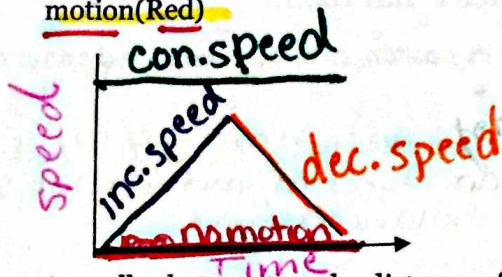 motion(Red)
con.speed
speed
inc.speed
dec.speed
no motion
Time